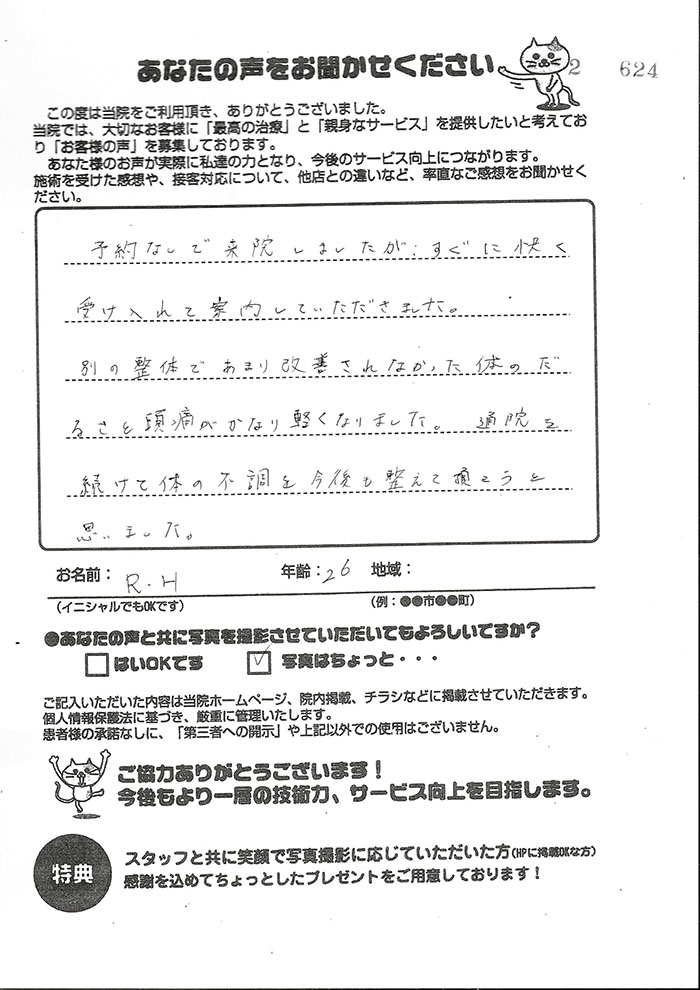 あなたの声をお聞かせください
2 624
この度は当院をご利用頂き、ありがとうございました。
当院では、大切なお客様に「最高の治療」と「親身なサービス」を提供したいと考えてお
り「お客様の声」を募集しております。
あなた様のお声が実際に私達の力となり、今後のサービス向上につながります。
施術を受けた感想や、接客対応について、他店との違いなど、率直なご感想をお聞かせく
ださい。
予約なしで来院しましたが、すぐに快く
受け入れて案内していただきました。
別の整体であまり改善されなかった体のだ
るさと頭痛がかなり軽くなりました。通院を
続けて体の不調を今後も整えて頂こうと
思いました。
お名前： R.H 年齢：26 地域：
（イニシャルでもOKです） （例：●●市●●町）
●あなたの声と共に写真を撮影させていただいてもよろしいですか？
□はいOKです ☑写真はちょっと・・・
ご記入いただいた内容は当院ホームページ、院内掲載、チラシなどに掲載させていただきます。
個人情報保護法に基づき、厳重に管理いたします。
患者様の承諾なしに、「第三者への開示」や上記以外での使用はございません。
ご協力ありがとうございます！
今後もより一層の技術力、サービス向上を目指します。
特典
スタッフと共に笑顔で写真撮影に応じていただいた方（HPに掲載OKな方）
感謝を込めてちょっとしたプレゼントをご用意しております！